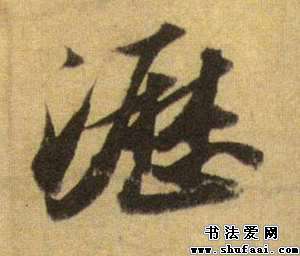 瀝
书法爱网
www.shufaai.com